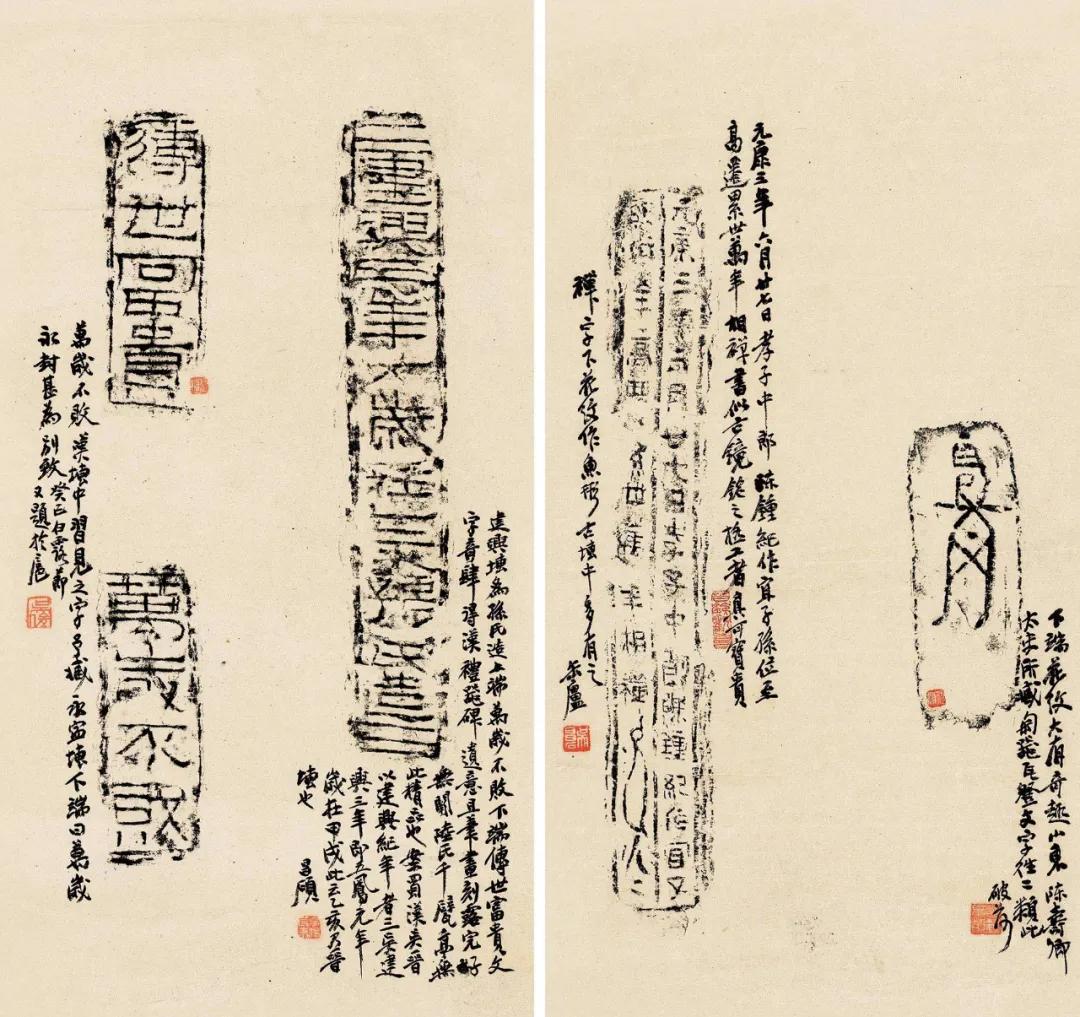 下端花紋大有奇趣山東陳壽卿
太史所藏匋器瓦登文字往二類此
破荷
元康三年六月廿七日孝子中郎陳鍾紀作宜子孫位至
高遷累世萬年相禪書似古鏡銘之極工者真可寶貴
元康三年六月廿七日孝子中郎陳鍾紀作宜子
孫位至高遷累世萬年相禪
禪字下花紋作魚形古塼中多有之 缶廬
建興塼為孫氏造上端萬歲不敗下端傳世富貴文
字奇肆得漢禮器碑遺意且筆畫刻露完好
無闕陸氏千甓亭無
此精品也案蜀漢吳晉
以建興紀年者三吳建
興三年即五鳳元年
歲在甲戌此云乙亥乃晉
塼也 昌碩
建興三年大歲在
孫氏造
傳世富貴
萬歲不敗
萬歲不敗漢塼中習見之字予藏永寧塼下端曰萬歲
永封甚為別致癸丑白露節
又題於滬